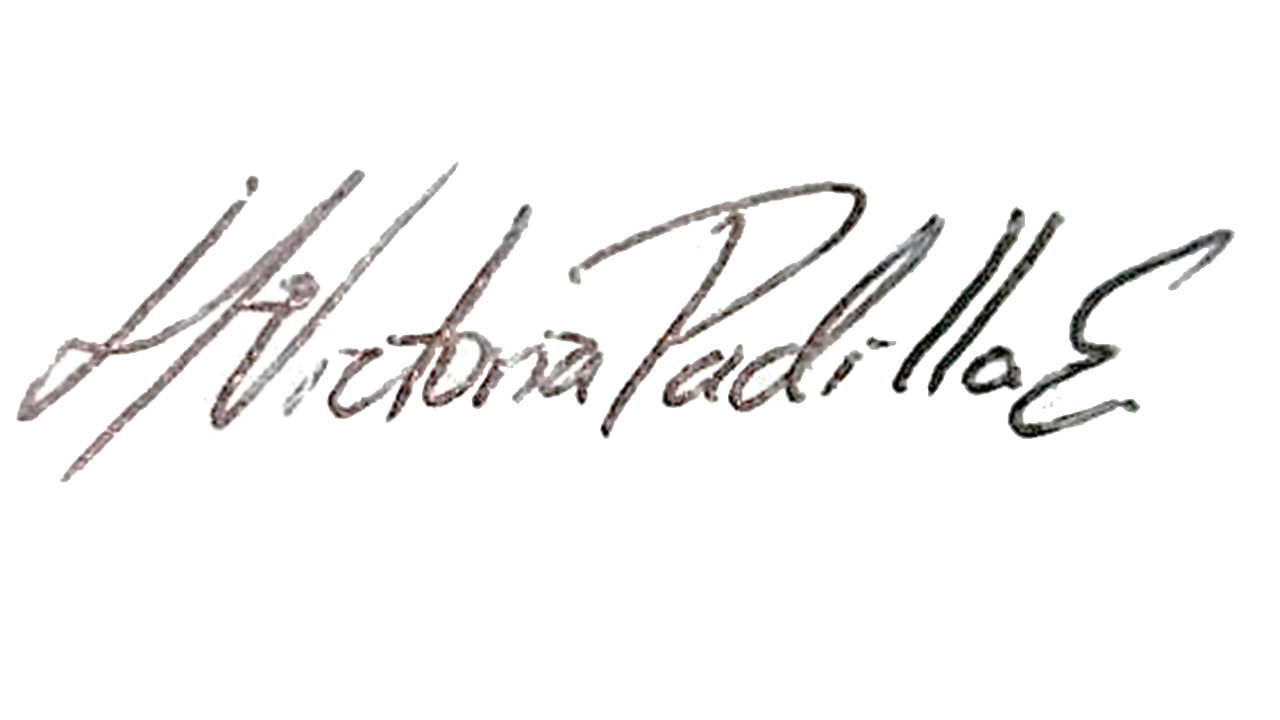 H Victoria Padilla E